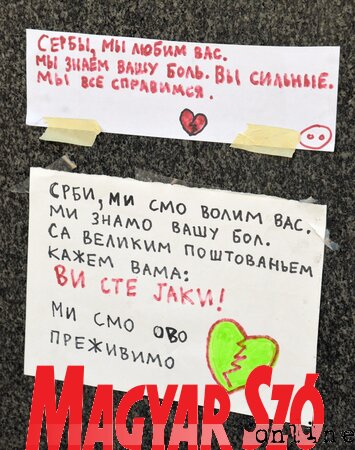 СЕРБЫ, МЫ ЛЮБИМ ВАС.
МЫ ЗНАЕМ ВАШУ БОЛЬ. ВЫ СИЛЬНЫЕ.
МЫ ВСЕ СПРАВИМСЯ.
СРБИ, МИ СМО ВОЛИМ ВАС,
МИ ЗНАМО ВАШУ БОЛ.
СА ВЕЛИКИМ ПОШТОВАЊЕМ
КАЖЕМ ВАМА:
ВИ СТЕ ЈАКИ!
МИ СМО ОВО
ПРЕЖИВИМО
MAGYAR SZÓ
online